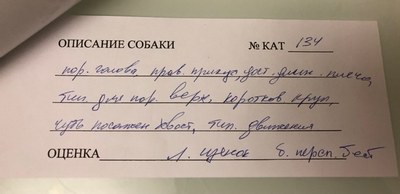 ОПИСАНИЕ СОБАКИ № КАТ 134
пор. голова, прав. прикус, дост. длин. плеча,
тип. для пор. верх, коротков. круп,
чуть посажен хвост, тип. движения
ОЦЕНКА Л. щенок б. персп. Беб